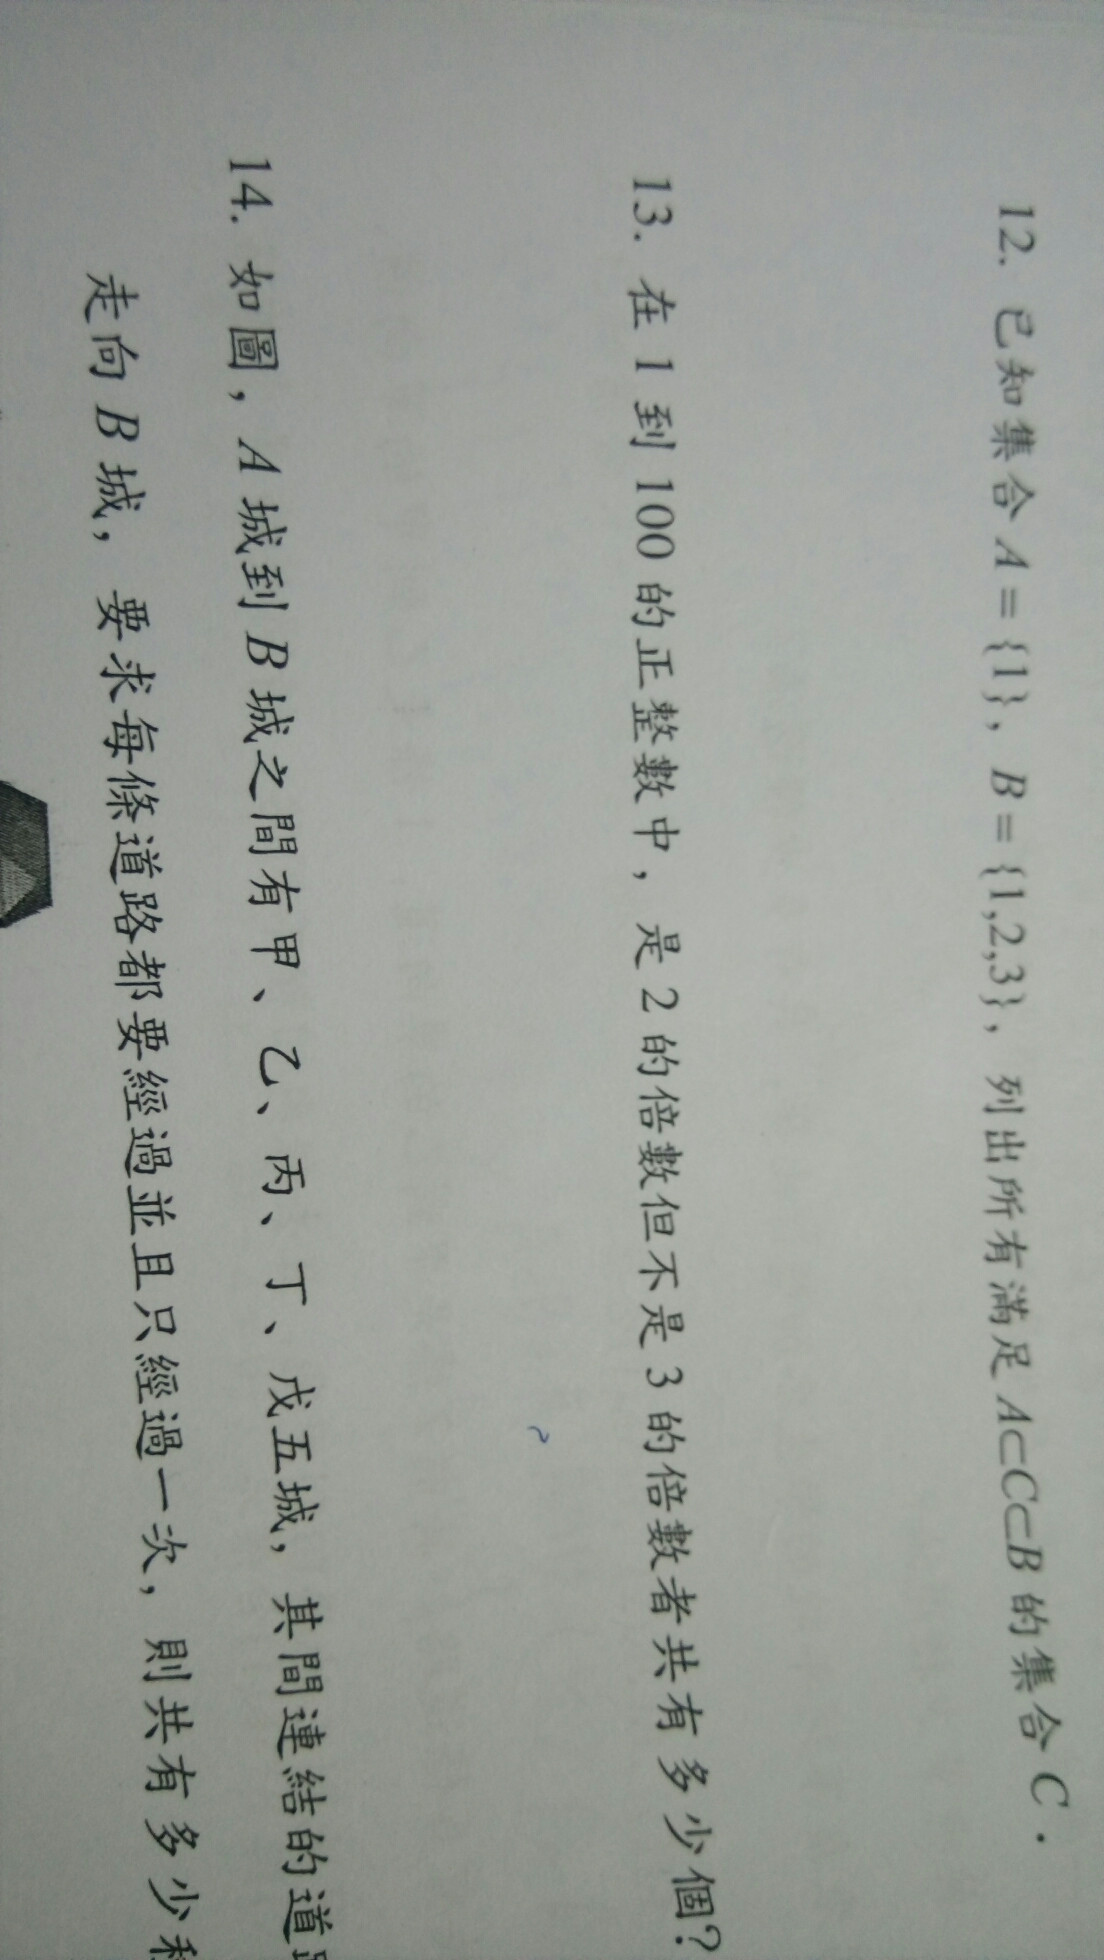 12. 已知集合 A={1}, B={1,2,3}, 列出所有滿足 A⊂C⊂B 的集合 C.
13. 在 1 到 100 的正整數中, 是 2 的倍數但不是 3 的倍數者共有多少個?
14. 如圖, A 城到 B 城之間有甲、乙、丙、丁、戊五城, 其間連結的道
走向 B 城, 要求每條道路都要經過並且只經過一次, 則共有多少